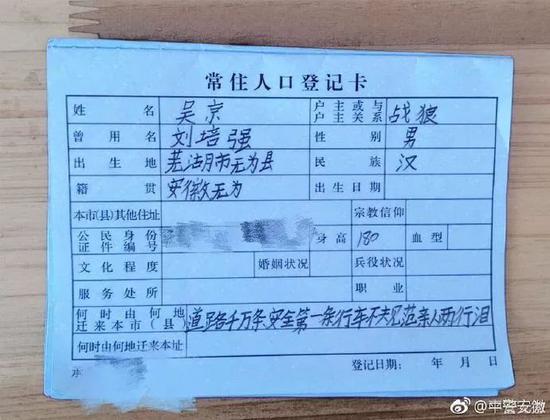 常住人口登记卡
姓名 吴京 户主或与户主关系 战狼
曾用名 刘培强 性别 男
出生地 芜湖市无为县 民族 汉
籍贯 安徽无为 出生日期
本市(县)其他住址 宗教信仰
公民身份证件编号 身高 180 血型
文化程度 婚姻状况 兵役状况
服务处所 职业
何时由何地迁来本市(县) 道路千万条安全第一条行车不规范亲人两行泪
何时由何地迁来本址
登记日期: 年 月 日
@平安安徽